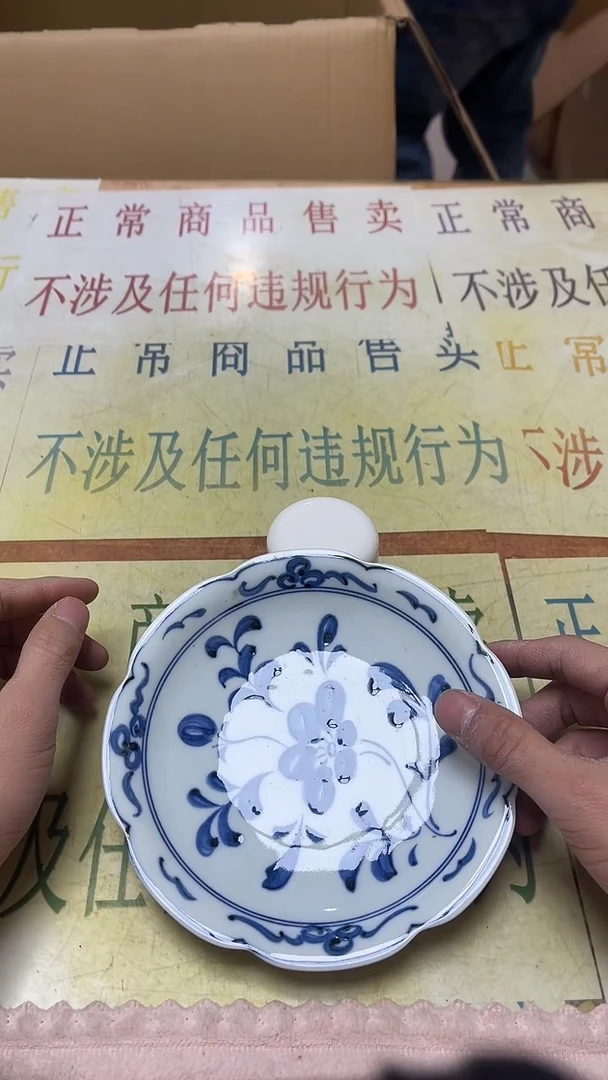 正常商品售卖 正常商
不涉及任何违规行为 不涉及任
正常商品售卖 正常
不涉及任何违规行为 不涉
商 正
及任 为